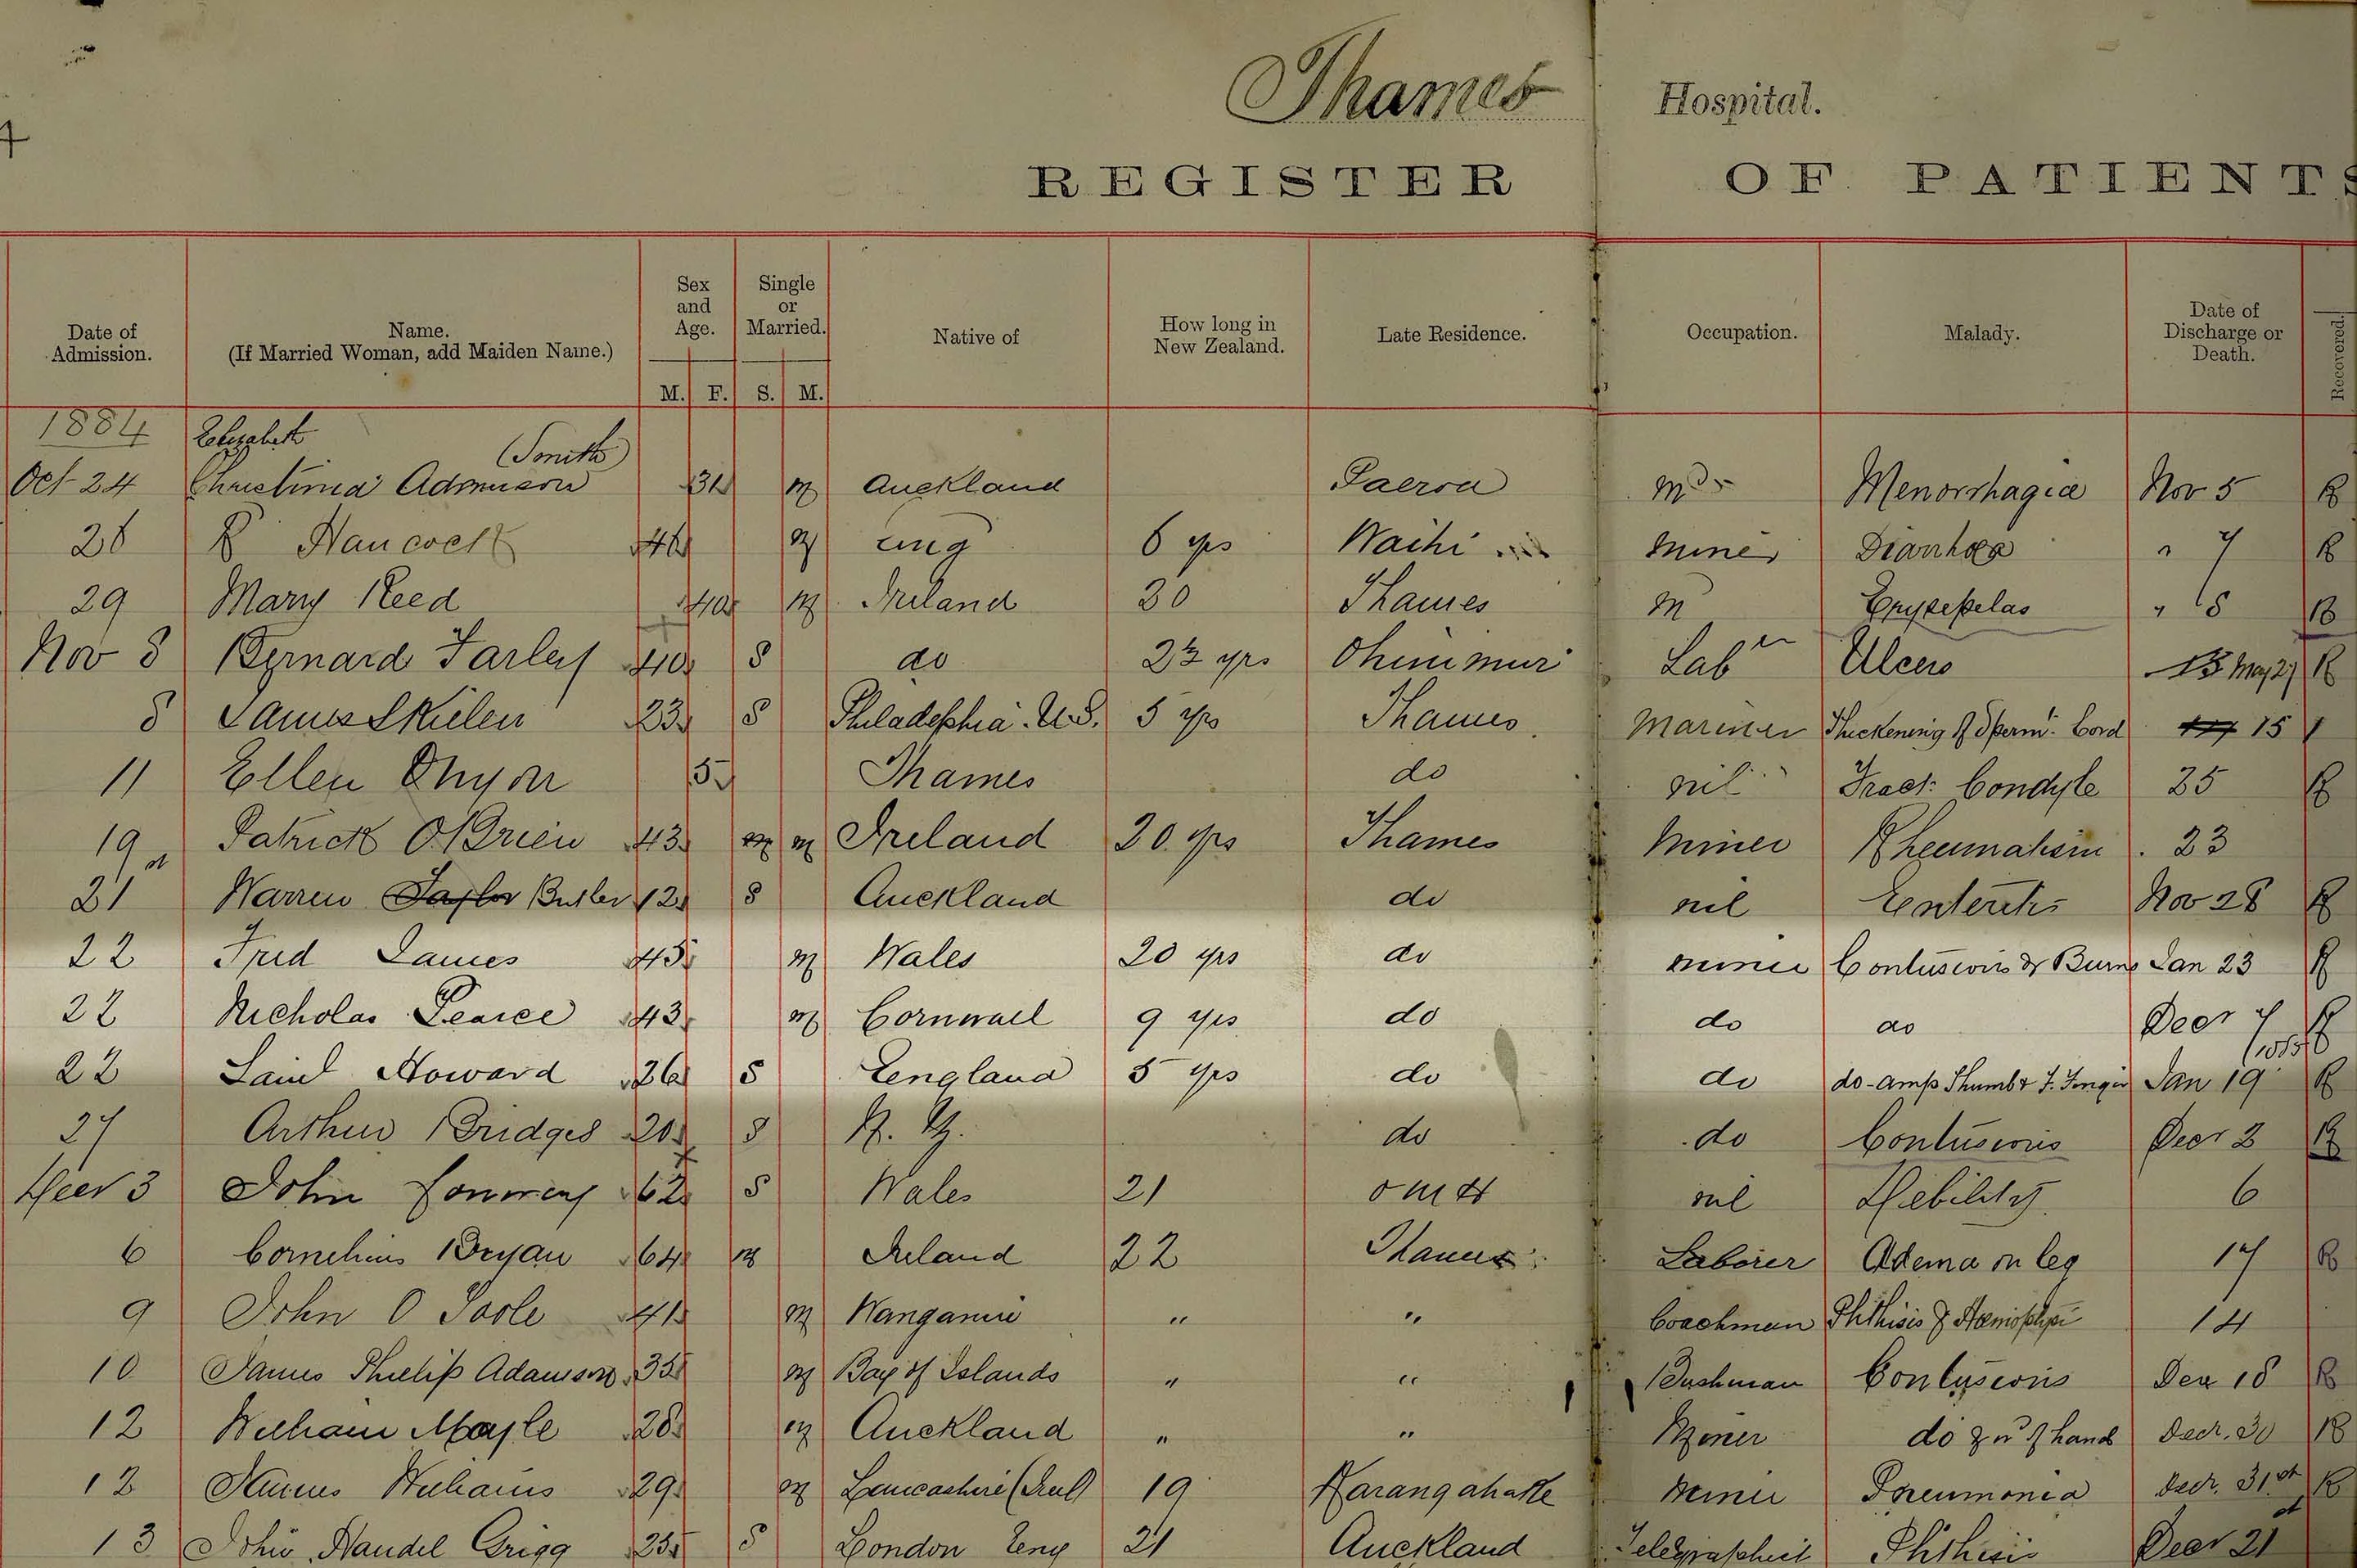 Thames Hospital.
REGISTER OF PATIENTS
Date of Admission. Name. (If Married Woman, add Maiden Name.) Sex and Age. M. F. Single or Married. S. M. Native of How long in New Zealand. Late Residence. Occupation. Malady. Date of Discharge or Death. Recovered.
1884 Elizabeth (Smith)
Oct 24 Christina Adamson 31 m Auckland Paeroa Menorrhagia Nov 5 R
28 R Hancock 46 m Eng 6 yrs Waihi miner Diarrhoea " 7 R
29 Mary Reed 40 m Ireland 20 Thames m Erysepelas " 8 R
Nov 8 Bernard Farley 40 S do 2½ yrs Ohinimuri Labr Ulcers May 27 R
8 James Skielen 23 S Philadelphia. U.S. 5 yrs Thames Mariner Thickening of Sperm. Cord 15
11 Ellen Onyon 5 Thames do nil Fract: Condyle 25 R
19 Patrick O'Brien 43 m Ireland 20 yrs Thames miner Rheumatism 23
21st Warren Taylor Butler 12 S Auckland do nil Enteritis Nov 28 R
22 Fred James 45 m Wales 20 yrs do miner Contusions & Burns Jan 23 R
22 Nicholas Pearce 43 m Cornwall 9 yrs do do do Decr 7 R
22 Saml Howard 26 S England 5 yrs do do do - amp Thumb & F. Finger Jan 19 (1885) R
27 Arthur Bridges 20 S N. Z. do do Contusions Decr 2 R
Decr 3 John 62 S Wales 21 nil Debility 6
6 Cornelius Bryan 64 m Ireland 22 Thames Laborer Adema on leg 17 R
9 John O Toole 41 m Wanganui " " Coachman Phthisis & 14
10 James Phillip Adamson 35 m Bay of Islands " " Bushman Contusions Dec 18 R
12 William Mayle 28 m Auckland " " Miner do of hand Decr. 30 R
12 Williams 29 m Lancashire 19 Karangahake miner Pneumonia Decr. 31st R
13 John Handel Grigg 25 S London Eng 21 Auckland Telegraphist Phthisis Decr 21st